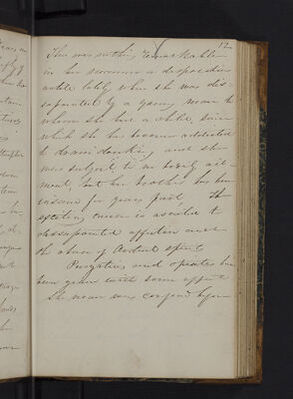 12
There was nothing remarkable
in her manner or disposition
until lately when she was dis-
appointed by a young man to
whom she had a child, since
which she has become addicted
to dram drinking and she
was subject to no bodily ail-
ment, but her brother has been
insane for years past The
exciting cause is ascribed to
disappointed affection and
the abuse of Ardent spirits
Purgatives and opiates have
been given with some effect
She never was confined before